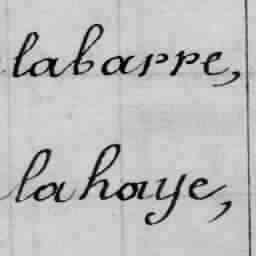 labarre,
lahaye,